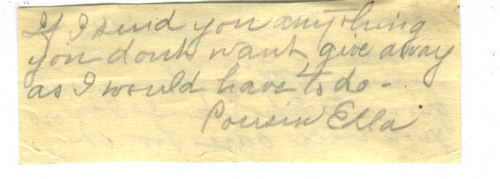 If I send you anything
you don't want, give away
as I would have to do -
Cousin Ella